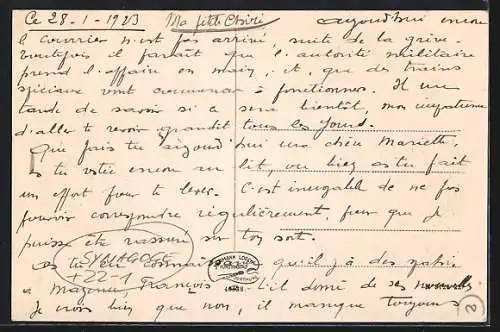 Ce 28-1-1923 Ma petite Chérie aujourd'hui encore
le courrier n'est pas arrivé, suite de la grève.
toutefois il paraît que l'autorité militaire
prend l'affaire en main, et, que des trains
spéciaux vont commencer à fonctionner. Il me
tarde de savoir si ce sera bientôt, mon impatience
d'aller te revoir grandit tous les jours.
Que fais tu aujourd'hui ma chère Mariette
es tu restée encore au lit, ou bien as tu fait
un effort pour te lever. C'est incroyable de ne pas
pouvoir correspondre régulièrement, pour que je
puisse être rassuré sur ton sort.
as tu eu connaissance qu'il y a des
à François t-il donné de ses nouvelles
Je crois bien que non, il manque toujours
SYNAGOGE
+22-1